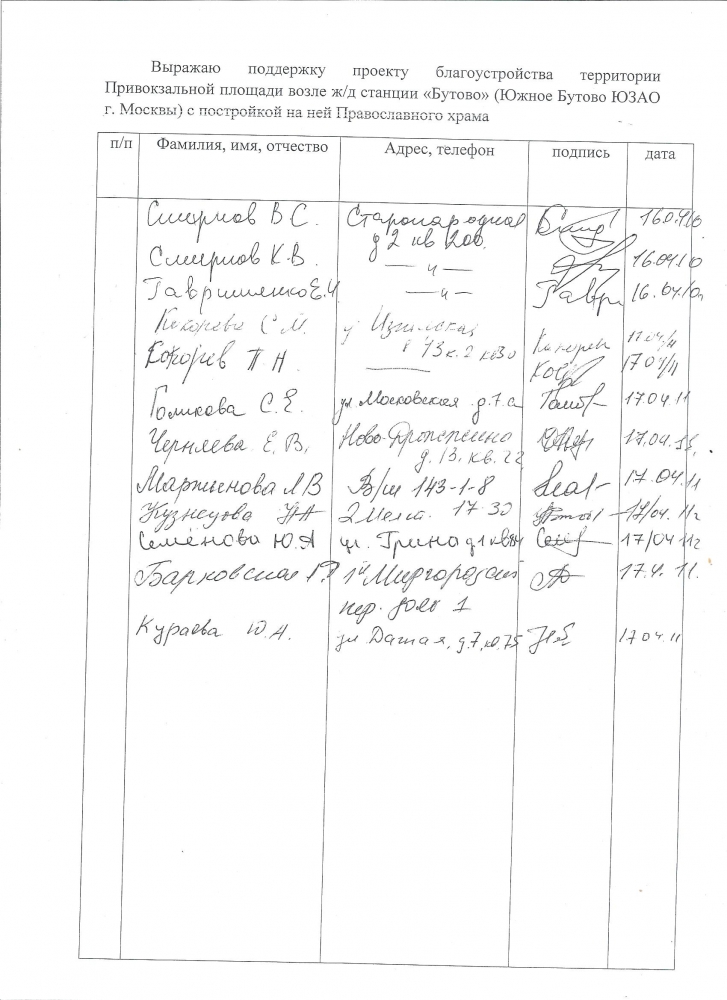 Выражаю поддержку проекту благоустройства территории
Привокзальной площади возле ж/д станции «Бутово» (Южное Бутово ЮЗАО
г. Москвы) с постройкой на ней Православного храма
п/п Фамилия, имя, отчество Адрес, телефон подпись дата
Смирнов В С. Старонародная 16.04.10
д 2 кв 200.
Смирнов К.В. — " — 16.04.10
Гавришенко Е.И. — " — Гаври 16.04.10г
Кокорева С М. у
73 к. 2 кв 30 17 04/11
Кокорев П Н. 17 04/11
Голикова С. Е. ул. Московская д. 7 а 17.04.11
Черняева Е. В. Ново-Дрожжино 17.04.11.
д. 13, кв. 22
Мартынова Л В В/ш 143-1-8 17.04.11
Кузнецова 17 30 17/04.11г
Семёнова Ю.А ул. Грина д 1 17/04 11г
Барковская 1й Миргородский 17.4.11.
пер. дом 1
Кураева Ю.А. д. 7, кв. 75 17 04 11